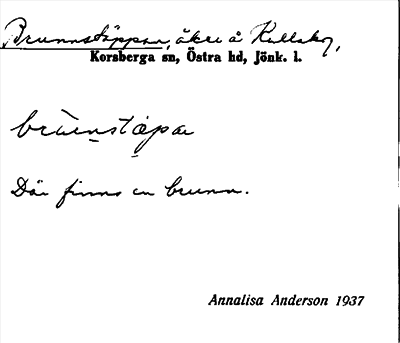 Brunnstäppan, åker å Kullskog,
Korsberga sn, Östra hd, Jönk. l.
brùnstæpa
Där finns en brunn.
Annalisa Anderson 1937